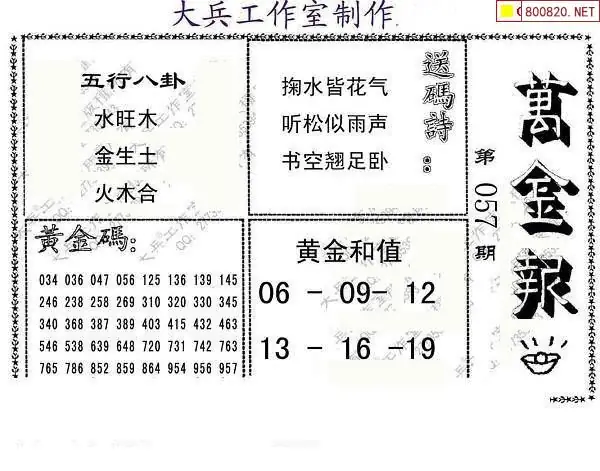 大兵工作室制作
800820.NET
萬金報
第057期
五行八卦
水旺木
金生土
火木合
送碼詩:
掬水皆花气
听松似雨声
书空翘足卧
黃金碼:
034 036 047 056 125 136 139 145
246 238 258 269 310 320 330 345
340 368 387 389 403 415 432 463
546 538 639 648 720 731 742 763
765 786 852 859 864 954 956 957
黄金和值
06 - 09- 12
13 - 16 -19